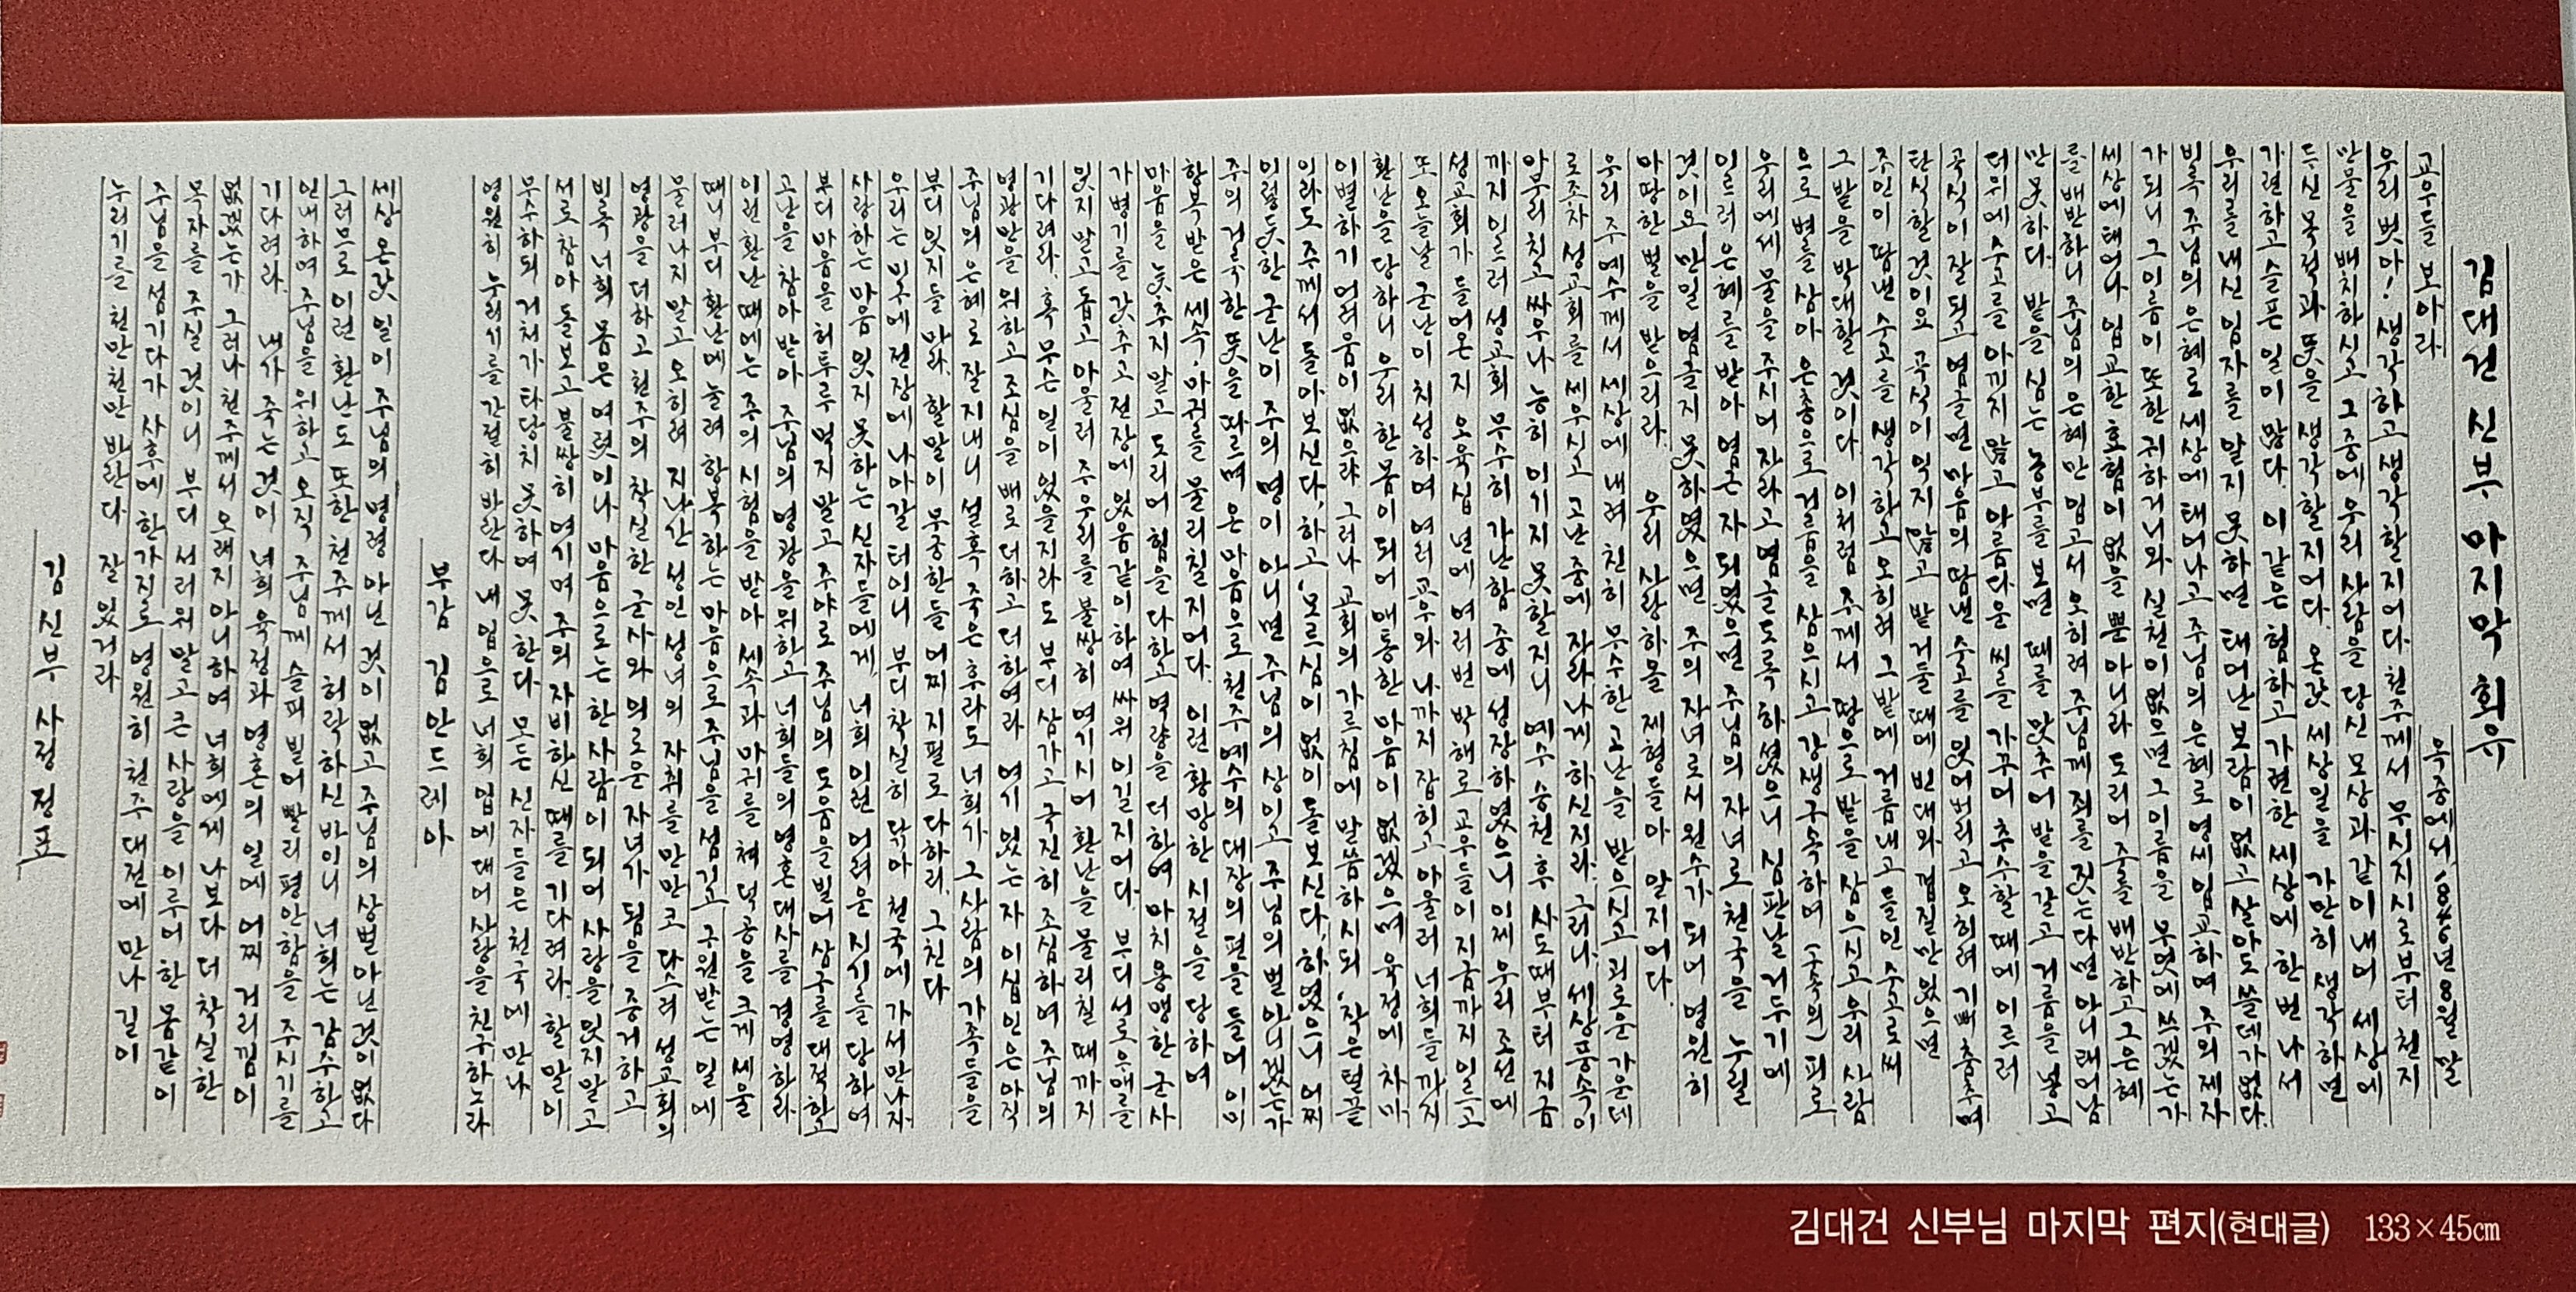 김대건 신부 마지막 회유
옥중에서, 1846년 8월 말
교우들 보아라
우리 벗아! 생각하고 생각할지어다. 천주께서 무시지시로부터 천지
만물을 배치하시고 그중에 우리 사람을 당신 모상과 같이 내어 세상에
두신 목적과 뜻을 생각할지어다. 온갖 세상일을 가만히 생각하면
가련하고 슬픈 일이 많다. 이 같은 험하고 가련한 세상에 한번 나서
우리를 내신 임자를 알지 못하면 태어난 보람이 없고 살아도 쓸데가 없다.
비록 주님의 은혜로 세상에 태어나고 주님의 은혜로 영세 입교하여 주의 제자
가 되니 그 이름이 또한 귀하거니와 실천이 없으면 그 이름을 무엇에 쓰겠는가
세상에 태어나 입교한 효험이 없을 뿐 아니라 도리어 주를 배반하고 그 은혜
를 배반하니 주님의 은혜만 입고서 오히려 주님께 죄를 짓는다면 아니 태어남
만 못하다. 밭을 심는 농부를 보면 때를 맞추어 밭을 갈고 거름을 넣고
더위에 수고를 아끼지 않고 아름다운 씨를 가꾸어 추수할 때에 이르러
곡식이 잘되고 영글면 마음의 땀낸 수고를 잊어버리고 오히려 기뻐 춤추며
탄식할 것이오 곡식이 익지 않고 밭 거둘 때에 빈대와 껍질만 있으면
주인이 땀낸 수고를 생각하고 오히려 그 밭에 거름내고 들인 수고로써
그 밭을 박대할 것이다. 이처럼 주께서 땅으로 밭을 삼으시고 우리 사람
으로 벼를 삼아 은총으로 거름을 삼으시고 강생구속하여 (구주의) 피로
우리에게 물을 주시어 자라고 영글도록 하셨으니 심판날 거두기에
이르러 은혜를 받아 영근 자 되었으면 주님의 자녀로 천국을 누릴
것이요 만일 영글지 못하였으면 주의 자녀로서 원수가 되어 영원히
마땅한 벌을 받으리라. 우리 사랑하올 제형들아 알지어다.
우리 주 예수께서 세상에 내려 친히 무수한 고난을 받으시고 괴로운 가운데
로조차 성교회를 세우시고 고난 중에 자라나게 하신지라. 그러나 세상 풍속이
아무리 치고 싸우나 능히 이기지 못할지니 예수 승천 후 사도 때부터 지금
까지 이르러 성교회 무수히 가난함 중에 성장하였으니 이제 우리 조선에
성교회가 들어온지 오육십 년에 여러번 박해로 교우들이 지금까지 이르고
또 오늘날 군난이 치성하여 여러 교우와 나까지 잡히고 아울러 너희들까지
환난을 당하니 우리 한몸이 되어 애통한 마음이 없겠으며 육정에 차마
이별하기 어려움이 없으랴 그러나 교회의 가르침에 말씀하시되 '작은 털끝
이라도 주께서 돌아보신다.' 하고 '모르심이 없이 돌보신다.' 하였으니 어찌
이렇듯한 군난이 주의 명이 아니면 주님의 상이고 주님의 벌 아니겠는가
주의 거룩한 뜻을 따르며 온 마음으로 천주 예수의 대장의 편을 들어 이미
항복받은 세속·마귀를 물리칠지어다. 이런 황망한 시절을 당하여
마음을 늦추지 말고 도리어 힘을 다하고 역량을 더하여 마치 용맹한 군사
가 병기를 갖추고 전장에 있음같이 하여 싸워 이길지어다. 부디 서로 우애를
잊지 말고 돕고 아울러 주 우리를 불쌍히 여기시어 환난을 물리칠 때까지
기다려라. 혹 무슨 일이 있을지라도 부디 삼가고 극진히 조심하여 주님의
영광만을 위하고 조심을 배로 더하고 더하여라 여기 있는 자 이십인은 아직
주님의 은혜로 잘 지내니 설혹 죽은 후라도 너희가 그 사람의 가족들을
부디 잊지들 마라. 할말이 무궁한들 어찌 지필로 다하리. 그친다
우리는 미구에 전장에 나아갈 터이니 부디 착실히 닦아 천국에 가서 만나자.
사랑하는 마음 잊지 못하는 신자들에게. 너희 이런 어려운 시기를 당하여
부디 마음을 허투루 먹지 말고 주야로 주님의 도움을 빌어 삼구를 대적하고
고난을 참아 받아 주님의 영광을 위하고 너희들의 영혼 대사를 경영하라.
이런 환난 때에는 주의 시험을 받아 세속과 마귀를 쳐 덕공을 크게 세울
때니 부디 환난에 눌려 항복하는 마음으로 주님을 섬기고 구원받는 일에
물러나지 말고 오히려 지나간 성인 성녀의 자취를 만만코 다스려 성교회의
영광을 더하고 천주의 착실한 군사와 의로운 자녀가 됨을 증거하고
비록 너희 몸은 여럿이나 마음으로는 한 사람이 되어 사랑을 잊지 말고
서로 참아 돌보고 불쌍히 여기며 주의 자비하신 때를 기다려라. 할 말이
무수하되 거처가 타당치 못하여 못 한다. 모든 신자들은 천국에 만나
영원히 누리기를 간절히 바란다 내 입으로 너희 입에 대어 사랑을 친구하노라
부감 김안드레아
세상 온갖 일이 주님의 명령 아닌 것이 없고 주님의 상벌 아닌 것이 없다
그러므로 이런 환난도 또한 천주께서 허락하신 바이니 너희는 감수하고
인내하여 주님을 위하고 오직 주님께 슬피 빌어 빨리 평안함을 주시기를
기다려라. 내가 죽는 것이 너희 육정과 영혼의 일에 어찌 거리낌이
없겠는가 그러나 천주께서 오래지 아니하여 너희에게 나보다 더 착실한
목자를 주실 것이니 부디 서러워 말고 큰 사랑을 이루어 한 몸같이
주님을 섬기다가 사후에 한가지로 영원히 천주 대전에 만나 길이
누리기를 천만 천만 바란다. 잘 있거라
김신부 사정 정표
김대건 신부님 마지막 편지(현대글) 133×45㎝